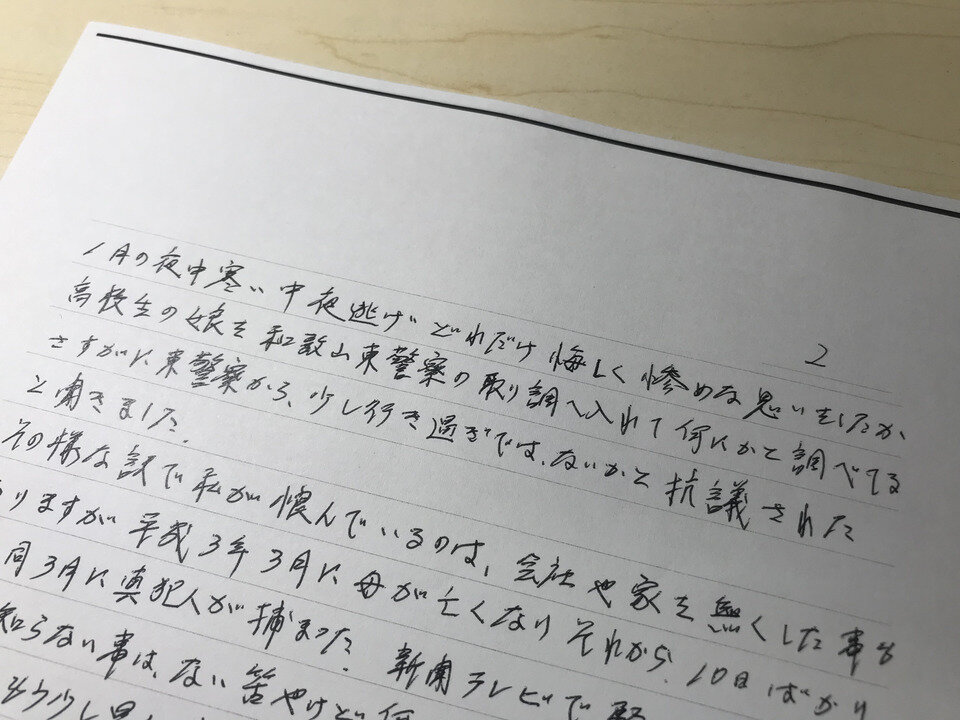 2
1月の夜中寒い中夜逃げどれだけ悔しく惨めな思いをしたか、
高校生の娘を和歌山東警察の取り調へ入れて何にかと調べてる
さすがに東警察から、少し行き過ぎでは、ないかと抗議された
と聞きました。
その様な訳で私が恨んでいるのは、会社や家を無くした事も
りますが平成3年3月に母が亡くなりそれから、10日ばかり
同3月に真犯人が捕まった。新聞テレビで
知らない事は、ない筈やけど何
もう少し早